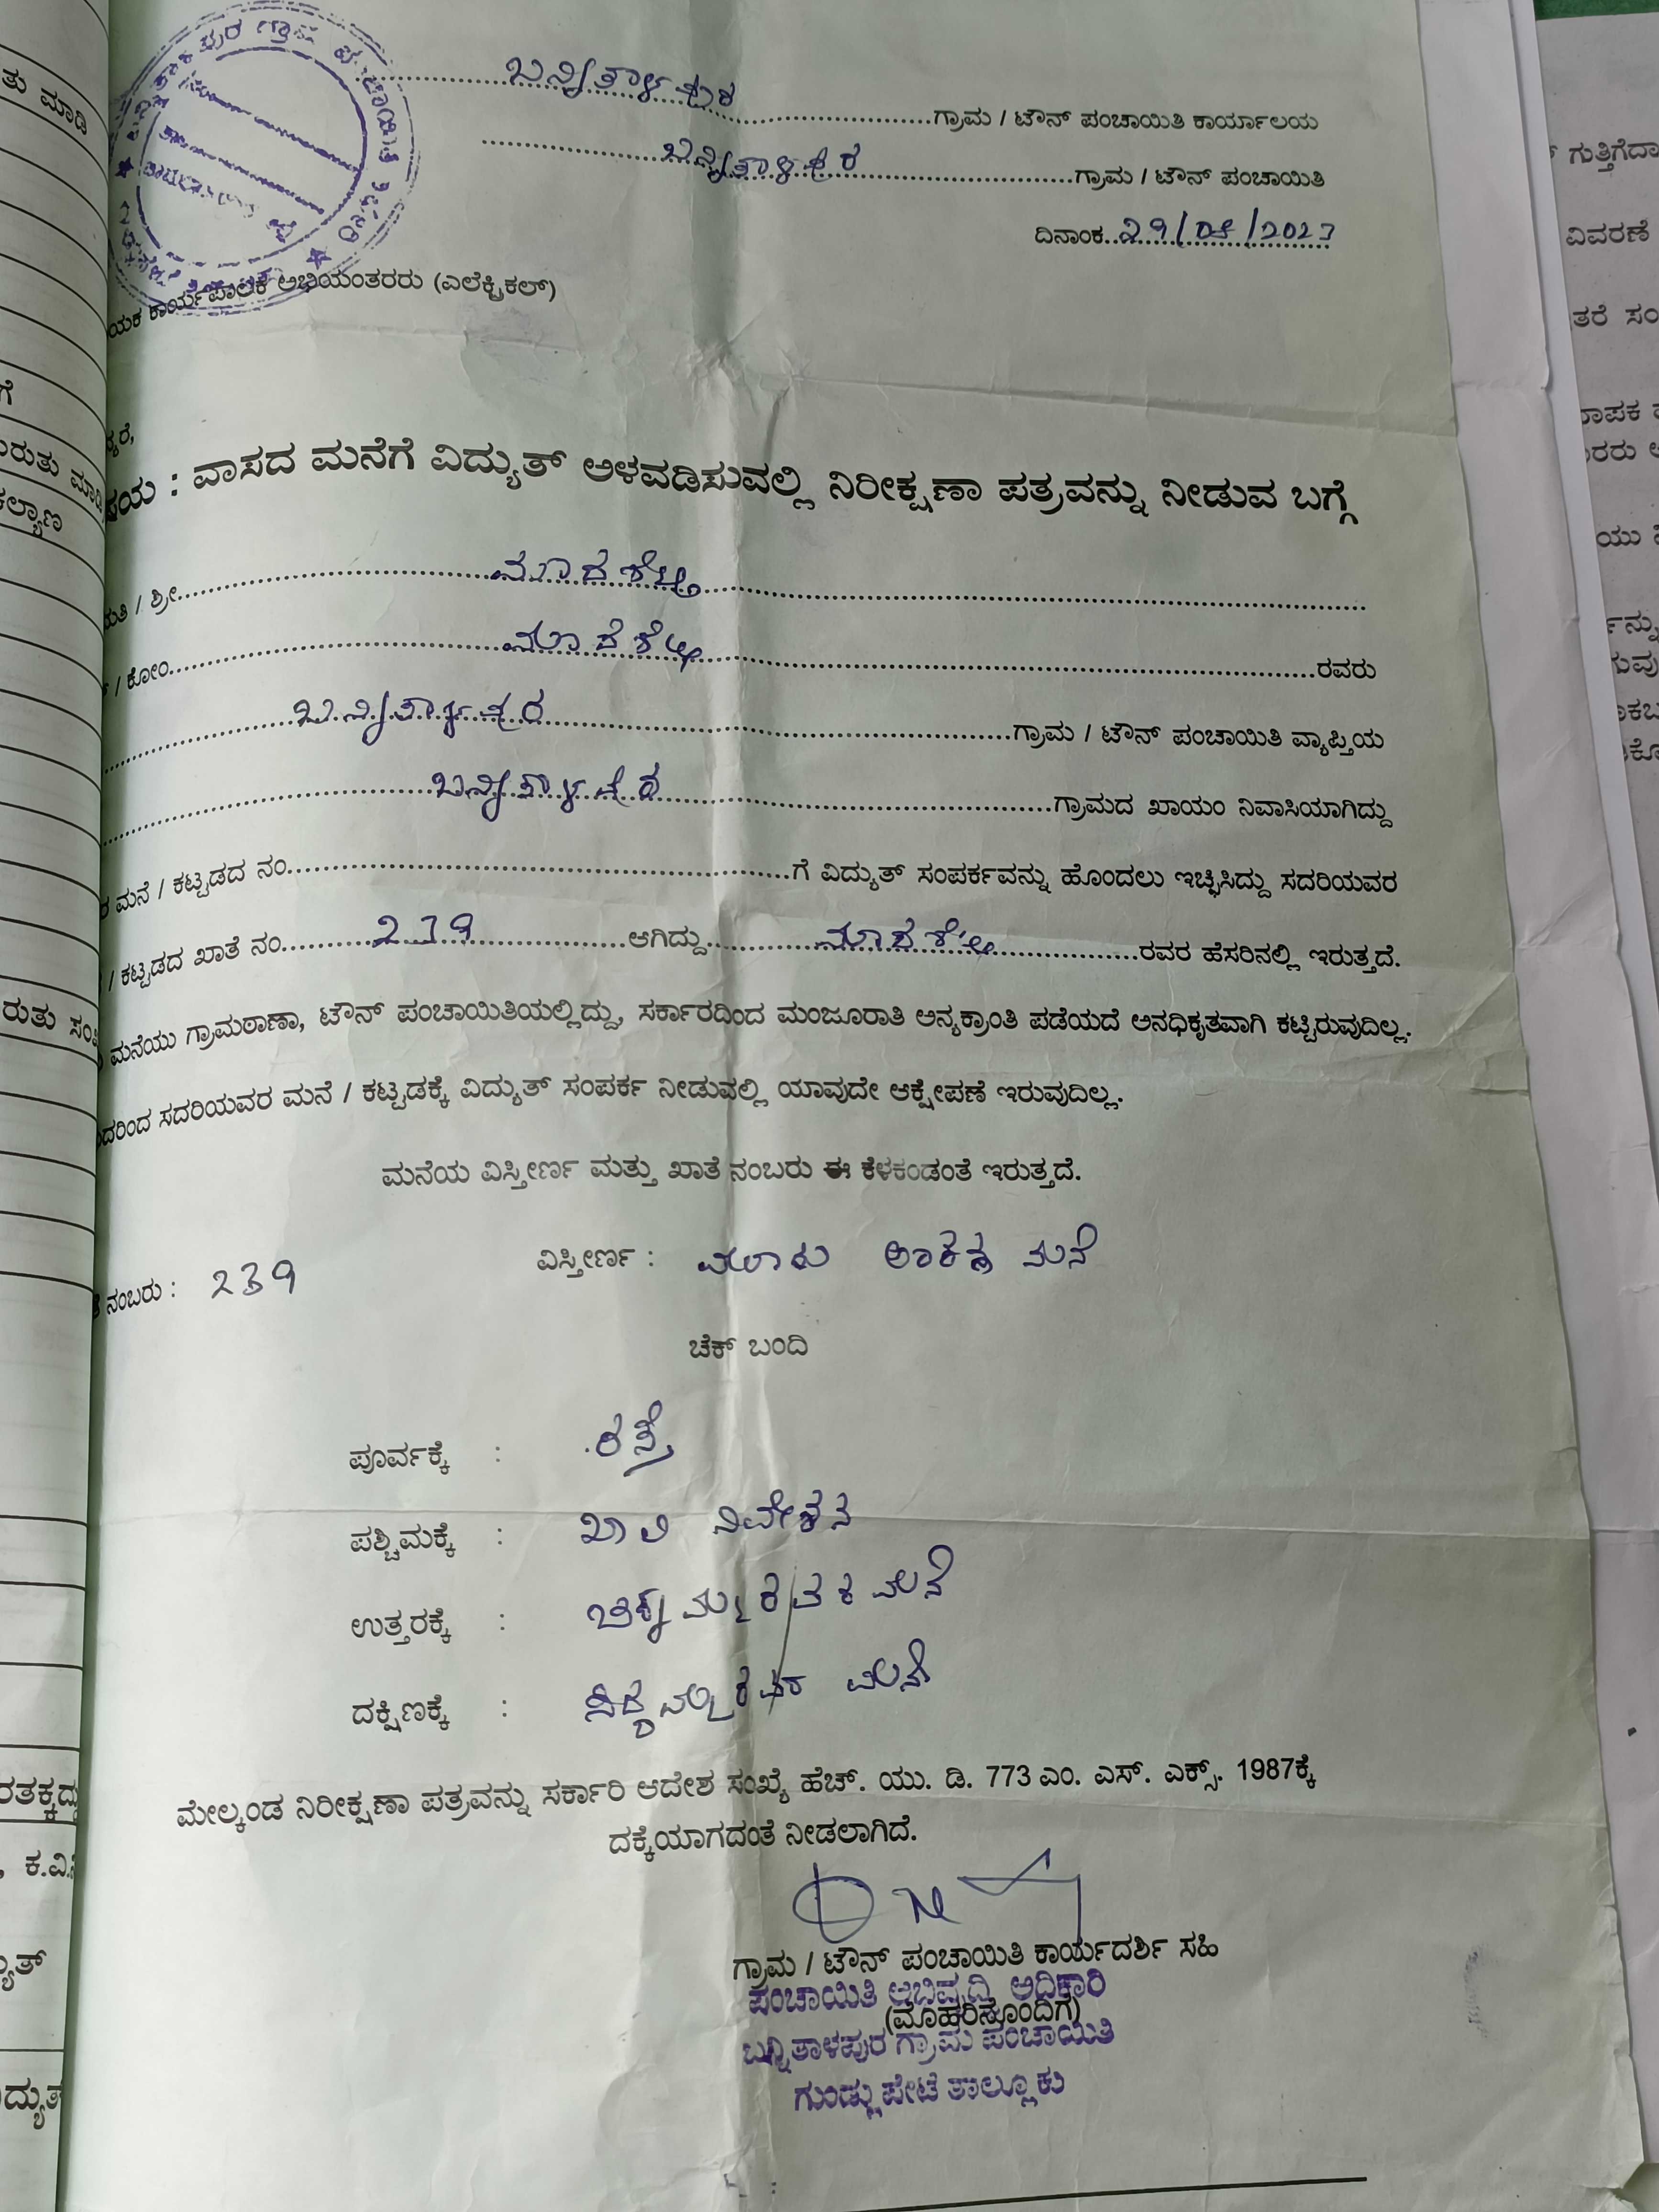 ಬನ್ನಿತಾಳಪುರ ಗ್ರಾಮ / ಟೌನ್ ಪಂಚಾಯಿತಿ ಕಾರ್ಯಾಲಯ
ಬನ್ನಿತಾಳಪುರ ಗ್ರಾಮ / ಟೌನ್ ಪಂಚಾಯಿತಿ
ದಿನಾಂಕ 29/08/2023
ಕಾರ್ಯಪಾಲಕ ಅಭಿಯಂತರರು (ಎಲೆಕ್ಟ್ರಿಕಲ್)
: ವಾಸದ ಮನೆಗೆ ವಿದ್ಯುತ್ ಅಳವಡಿಸುವಲ್ಲಿ ನಿರೀಕ್ಷಣಾ ಪತ್ರವನ್ನು ನೀಡುವ ಬಗ್ಗೆ
/ ಶ್ರೀ ಮಾದಶೆಟ್ಟಿ
/ ಕೋಂ ರವರು
ಬನ್ನಿತಾಳಪುರ ಗ್ರಾಮ / ಟೌನ್ ಪಂಚಾಯಿತಿ ವ್ಯಾಪ್ತಿಯ
ಬನ್ನಿತಾಳಪುರ ಗ್ರಾಮದ ಖಾಯಂ ನಿವಾಸಿಯಾಗಿದ್ದು
ಮನೆ / ಕಟ್ಟಡದ ನಂ. ಗೆ ವಿದ್ಯುತ್ ಸಂಪರ್ಕವನ್ನು ಹೊಂದಲು ಇಚ್ಛಿಸಿದ್ದು ಸದರಿಯವರ
/ ಕಟ್ಟಡದ ಖಾತೆ ನಂ. 239 ಆಗಿದ್ದು ಮಾದಶೆಟ್ಟಿ ರವರ ಹೆಸರಿನಲ್ಲಿ ಇರುತ್ತದೆ.
ಮನೆಯು ಗ್ರಾಮಠಾಣಾ, ಟೌನ್ ಪಂಚಾಯಿತಿಯಲ್ಲಿದ್ದು, ಸರ್ಕಾರದಿಂದ ಮಂಜೂರಾತಿ ಅನ್ಯಕ್ರಾಂತಿ ಪಡೆಯದೆ ಅನಧಿಕೃತವಾಗಿ ಕಟ್ಟಿರುವುದಿಲ್ಲ.
ಸದರಿಯವರ ಮನೆ / ಕಟ್ಟಡಕ್ಕೆ ವಿದ್ಯುತ್ ಸಂಪರ್ಕ ನೀಡುವಲ್ಲಿ ಯಾವುದೇ ಆಕ್ಷೇಪಣೆ ಇರುವುದಿಲ್ಲ.
ಮನೆಯ ವಿಸ್ತೀರ್ಣ ಮತ್ತು ಖಾತೆ ನಂಬರು ಈ ಕೆಳಕಂಡಂತೆ ಇರುತ್ತದೆ.
ನಂಬರು : 239 ವಿಸ್ತೀರ್ಣ : ಮೂರು ಅಂಕಣ ಮನೆ
ಚೆಕ್ ಬಂದಿ
ಪೂರ್ವಕ್ಕೆ : ರಸ್ತೆ
ಪಶ್ಚಿಮಕ್ಕೆ : ಖಾಲಿ ನಿವೇಶನ
ಉತ್ತರಕ್ಕೆ : ಮನೆ
ದಕ್ಷಿಣಕ್ಕೆ : ಮನೆ
ಮೇಲ್ಕಂಡ ನಿರೀಕ್ಷಣಾ ಪತ್ರವನ್ನು ಸರ್ಕಾರಿ ಆದೇಶ ಸಂಖ್ಯೆ ಹೆಚ್. ಯು. ಡಿ. 773 ಎಂ. ಎಸ್. ಎಕ್ಸ್. 1987ಕ್ಕೆ
ದಕ್ಕೆಯಾಗದಂತೆ ನೀಡಲಾಗಿದೆ.
ಗ್ರಾಮ / ಟೌನ್ ಪಂಚಾಯಿತಿ ಕಾರ್ಯದರ್ಶಿ ಸಹಿ
ಪಂಚಾಯಿತಿ ಅಭಿವೃದ್ಧಿ ಅಧಿಕಾರಿ
(ಮೊಹರಿನೊಂದಿಗೆ)
ಬನ್ನಿತಾಳಪುರ ಗ್ರಾಮ ಪಂಚಾಯಿತಿ
ಗುಂಡ್ಲುಪೇಟೆ ತಾಲ್ಲೂಕು